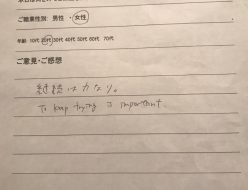 ご職業性別: 男性 ・ 女性
年齢 10代 20代 30代 40代 50代 60代 70代
ご意見・ご感想
継続は力なり。
To keep trying is important.